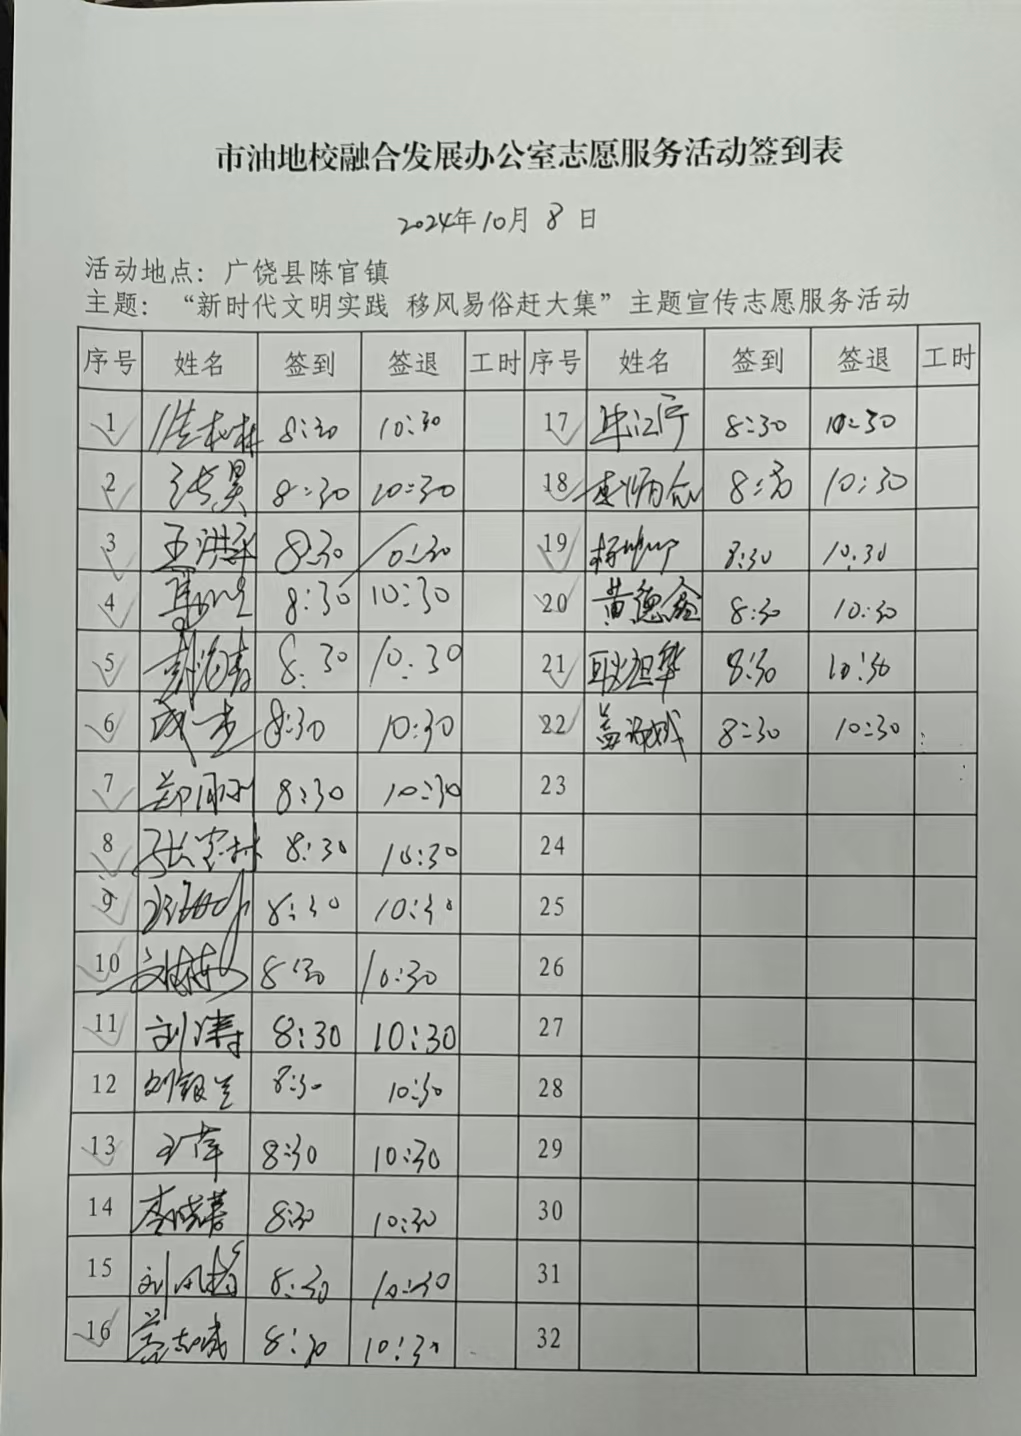 市油地校融合发展办公室志愿服务活动签到表
2024年10月8日
活动地点：广饶县陈官镇
主题：“新时代文明实践 移风易俗赶大集”主题宣传志愿服务活动
序号 姓名 签到 签退 工时 序号 姓名 签到 签退 工时
1 8:30 10:30 17 8:30 10:30
2 张昊 8:30 10:30 18 8:30 10:30
3 王洪 8:30 10:30 19 8:30 10:30
4 8:30 10:30 20 黄德鑫 8:30 10:30
5 8:30 10:30 21 8:30 10:30
6 8:30 10:30 22 8:30 10:30
7 8:30 10:30 23
8 张 8:30 10:30 24
9 8:30 10:30 25
10 刘 8:30 10:30 26
11 刘涛 8:30 10:30 27
12 刘银兰 8:30 10:30 28
13 王萍 8:30 10:30 29
14 李晓蓉 8:30 10:30 30
15 刘凤 8:30 10:30 31
16 8:30 10:30 32